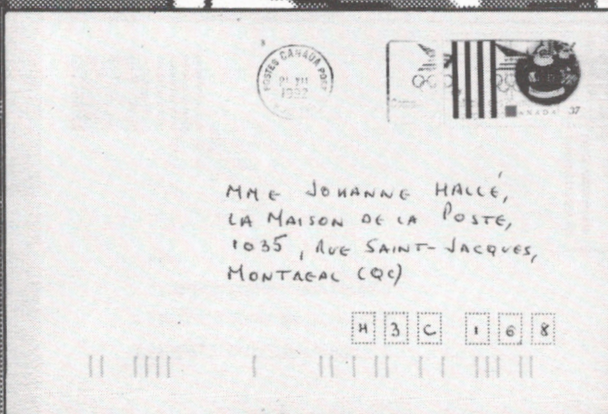 POSTES CANADA POST
21 XII
1992
CANADA 37
MME JOHANNE HALLÉ,
LA MAISON DE LA POSTE,
1035, RUE SAINT-JACQUES,
MONTREAL (QC)
H3C 168